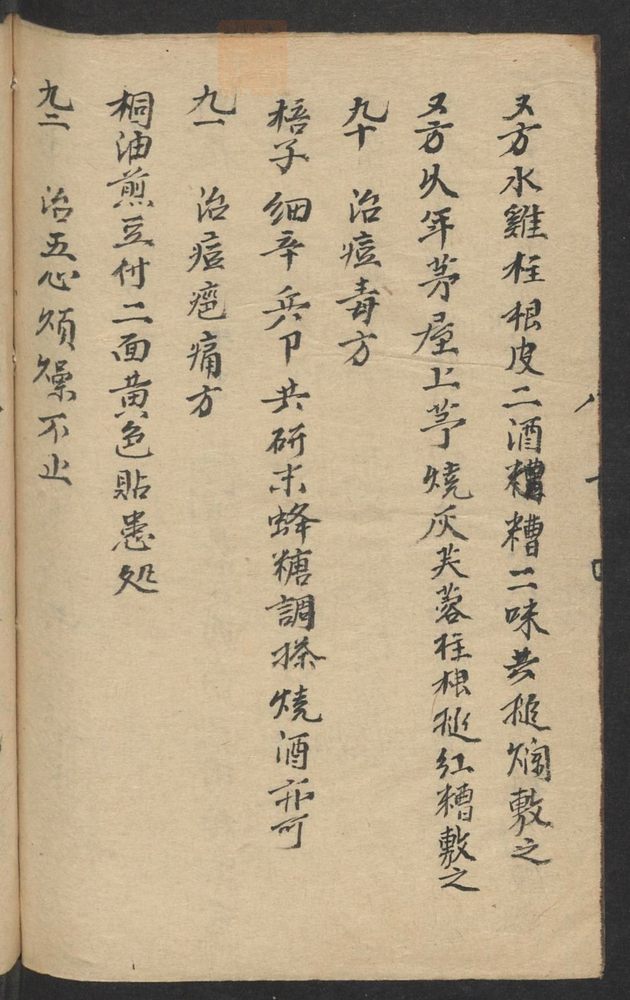 又方水雞柱根皮二酒糟糟二味共搥爛敷之
又方久年茅屋上茅燒灰芙蓉柱根搥紅糟敷之
九十 治痘毒方
梧子細辛兵卩共研末蜂糖調搽燒酒亦可
九一 治痘疤痛方
桐油煎豆付二面黄色貼患処
九二 治五心煩燥不止